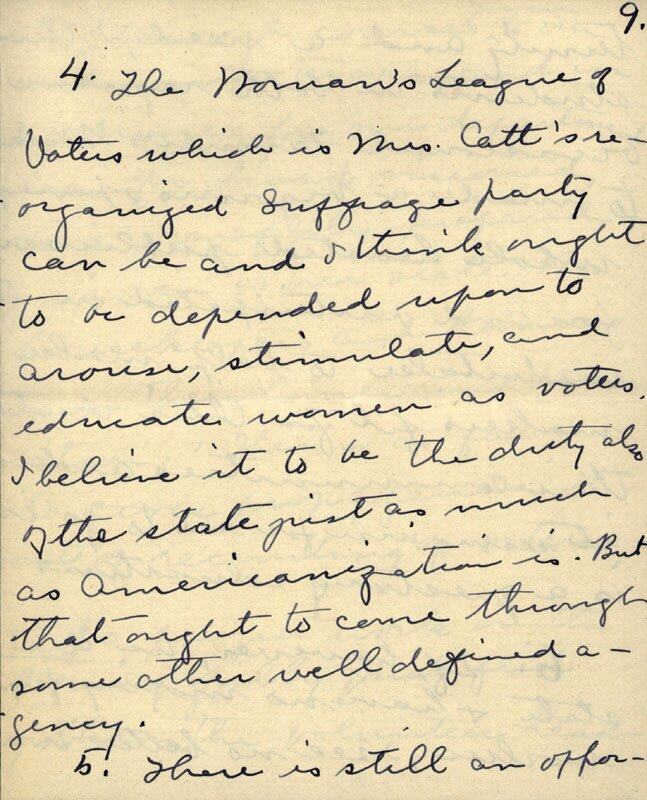 9.
4. The Woman's League of
Voters which is Mrs. Catt's re-
organized Suffrage party
can be and I think ought
to be depended upon to
arouse, stimulate, and
educate women as voters.
I believe it to be the duty also
of the state just as much
as Americanization is. But
that ought to come through
some other well defined a-
gency.
5. There is still an oppor-